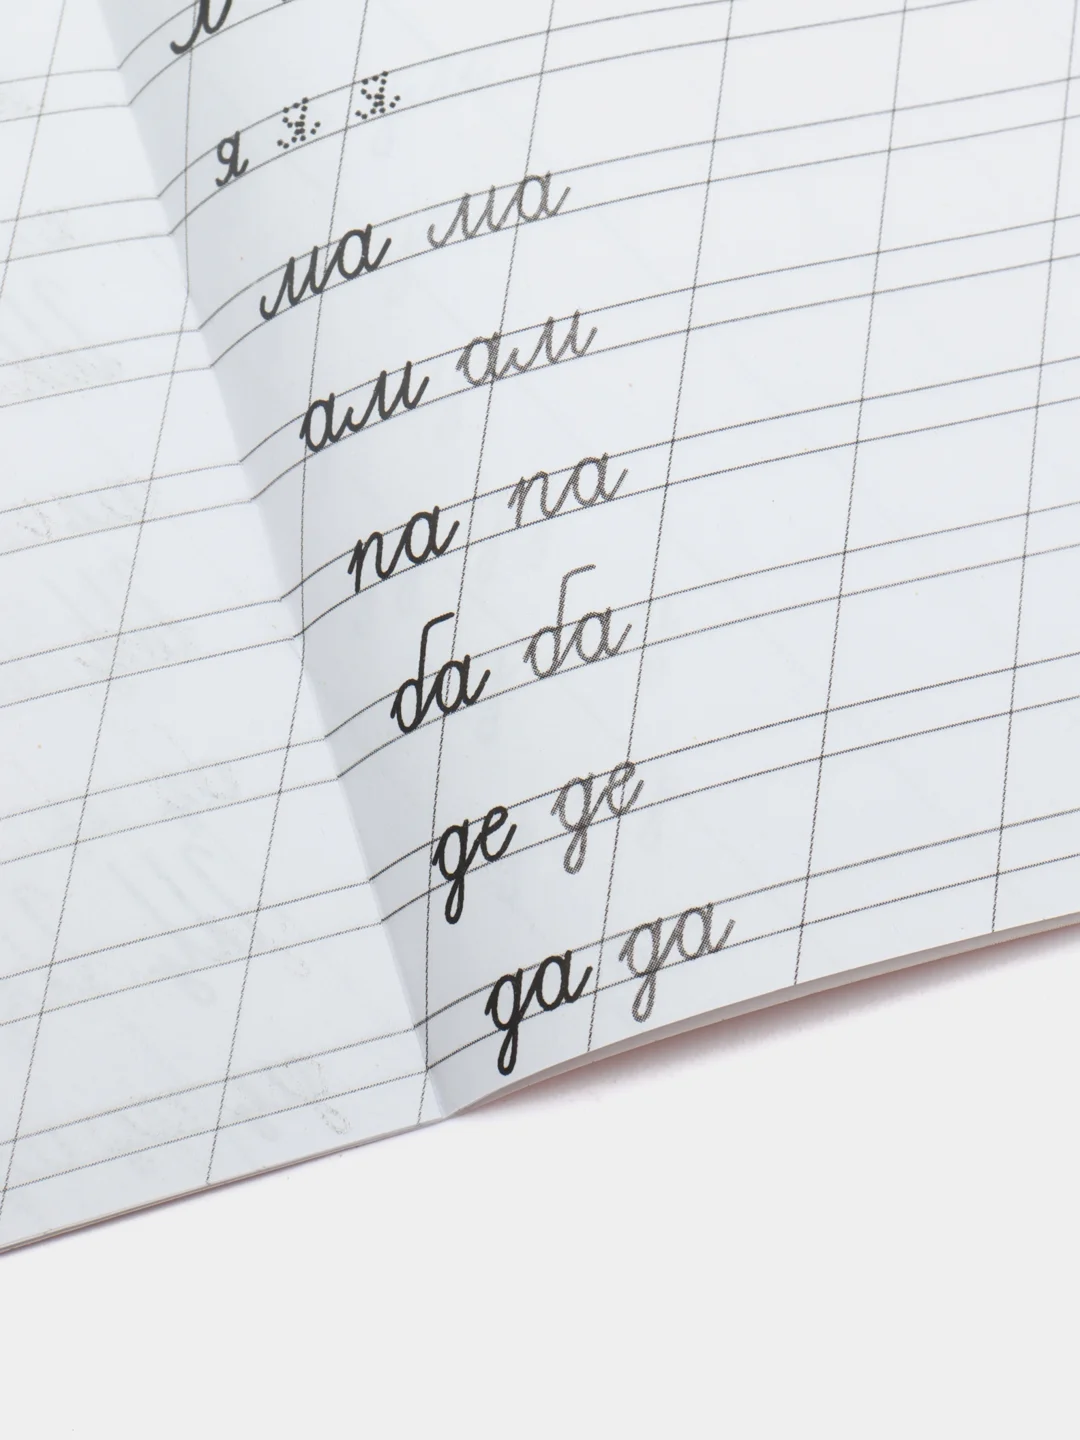 я я я
ма ма
ам ам
па па
ба ба
де де
да да